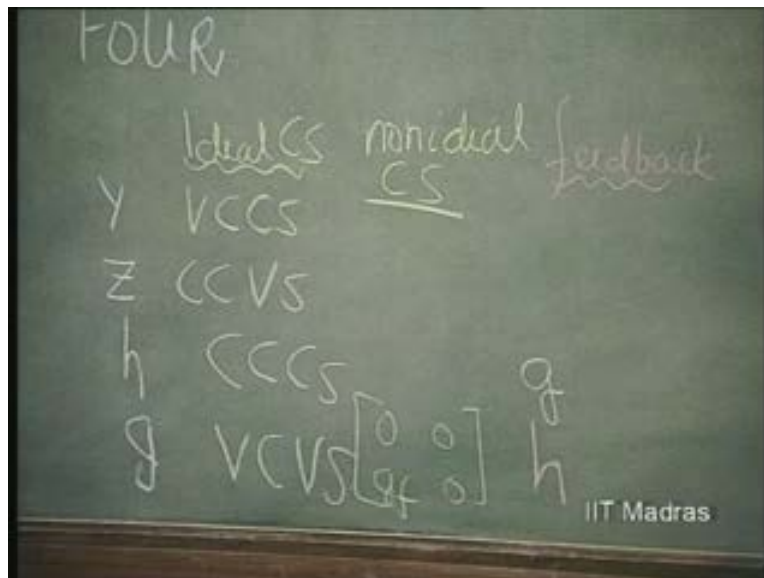 FOUR
Ideal CS nonideal feedback
CS
Y VCCS
Z CCVS
h CCCS g
g VCVS [0 0 h
gf 0]
IIT Madras